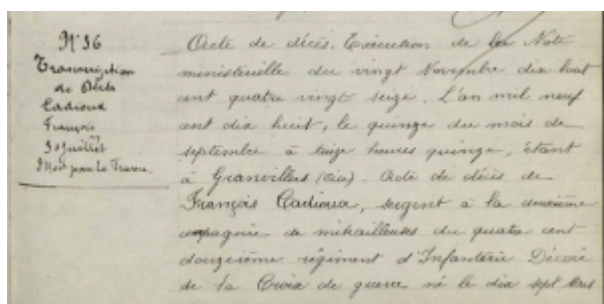 N° 36
Transcription
de Décès
Cadioux
François
30 juillet
Mort pour la France
Acte de décès. Exécution de la Note
ministérielle du vingt Novembre dix huit
cent quatre vingt seize. L'an mil neuf
cent dix huit, le quinze du mois de
septembre à treize heures quinze, étant
à Granvillers (Oise). Acte de décès de
François Cadioux, sergent à la deuxième
compagnie de mitrailleuses du quatre cent
douzième régiment d'Infanterie Décoré
de la Croix de guerre né le dix sept Mars